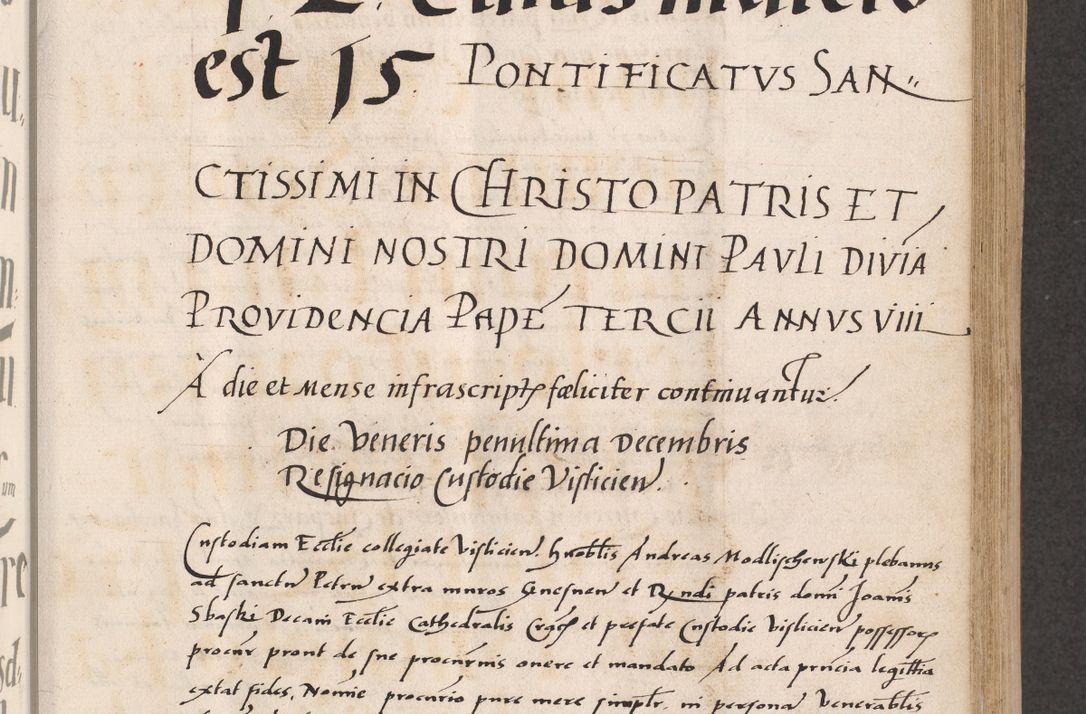 est 15 PONTIFICATVS SAN„
CTISSIMI IN CHRISTO PATRIS ET
DOMINI NOSTRI DOMINI PAVLI DIVIA
PROVIDENCIA PAPE TERCII ANNVS VIII
A die et Mense infrascript fœliciter continuantur.
Die Veneris penultima Decembris
Resignacio Custodie Vislicien.
Custodiam Ecclie collegiate Vislicien. hnobilis Andreas Modlischewski plebanus
ad sanctu Petru extra muros Gnesnen et Rndi patris domi Joanis
Sbaski Decani Ecclie Cathedralis Crac et prefate Custodie Vislicien possessor
procur prout de sue procurnis onere et mandato Ad acta pncia legittia
extat fides, Nomie procurio pure mere simplr. in persona Venerabilis